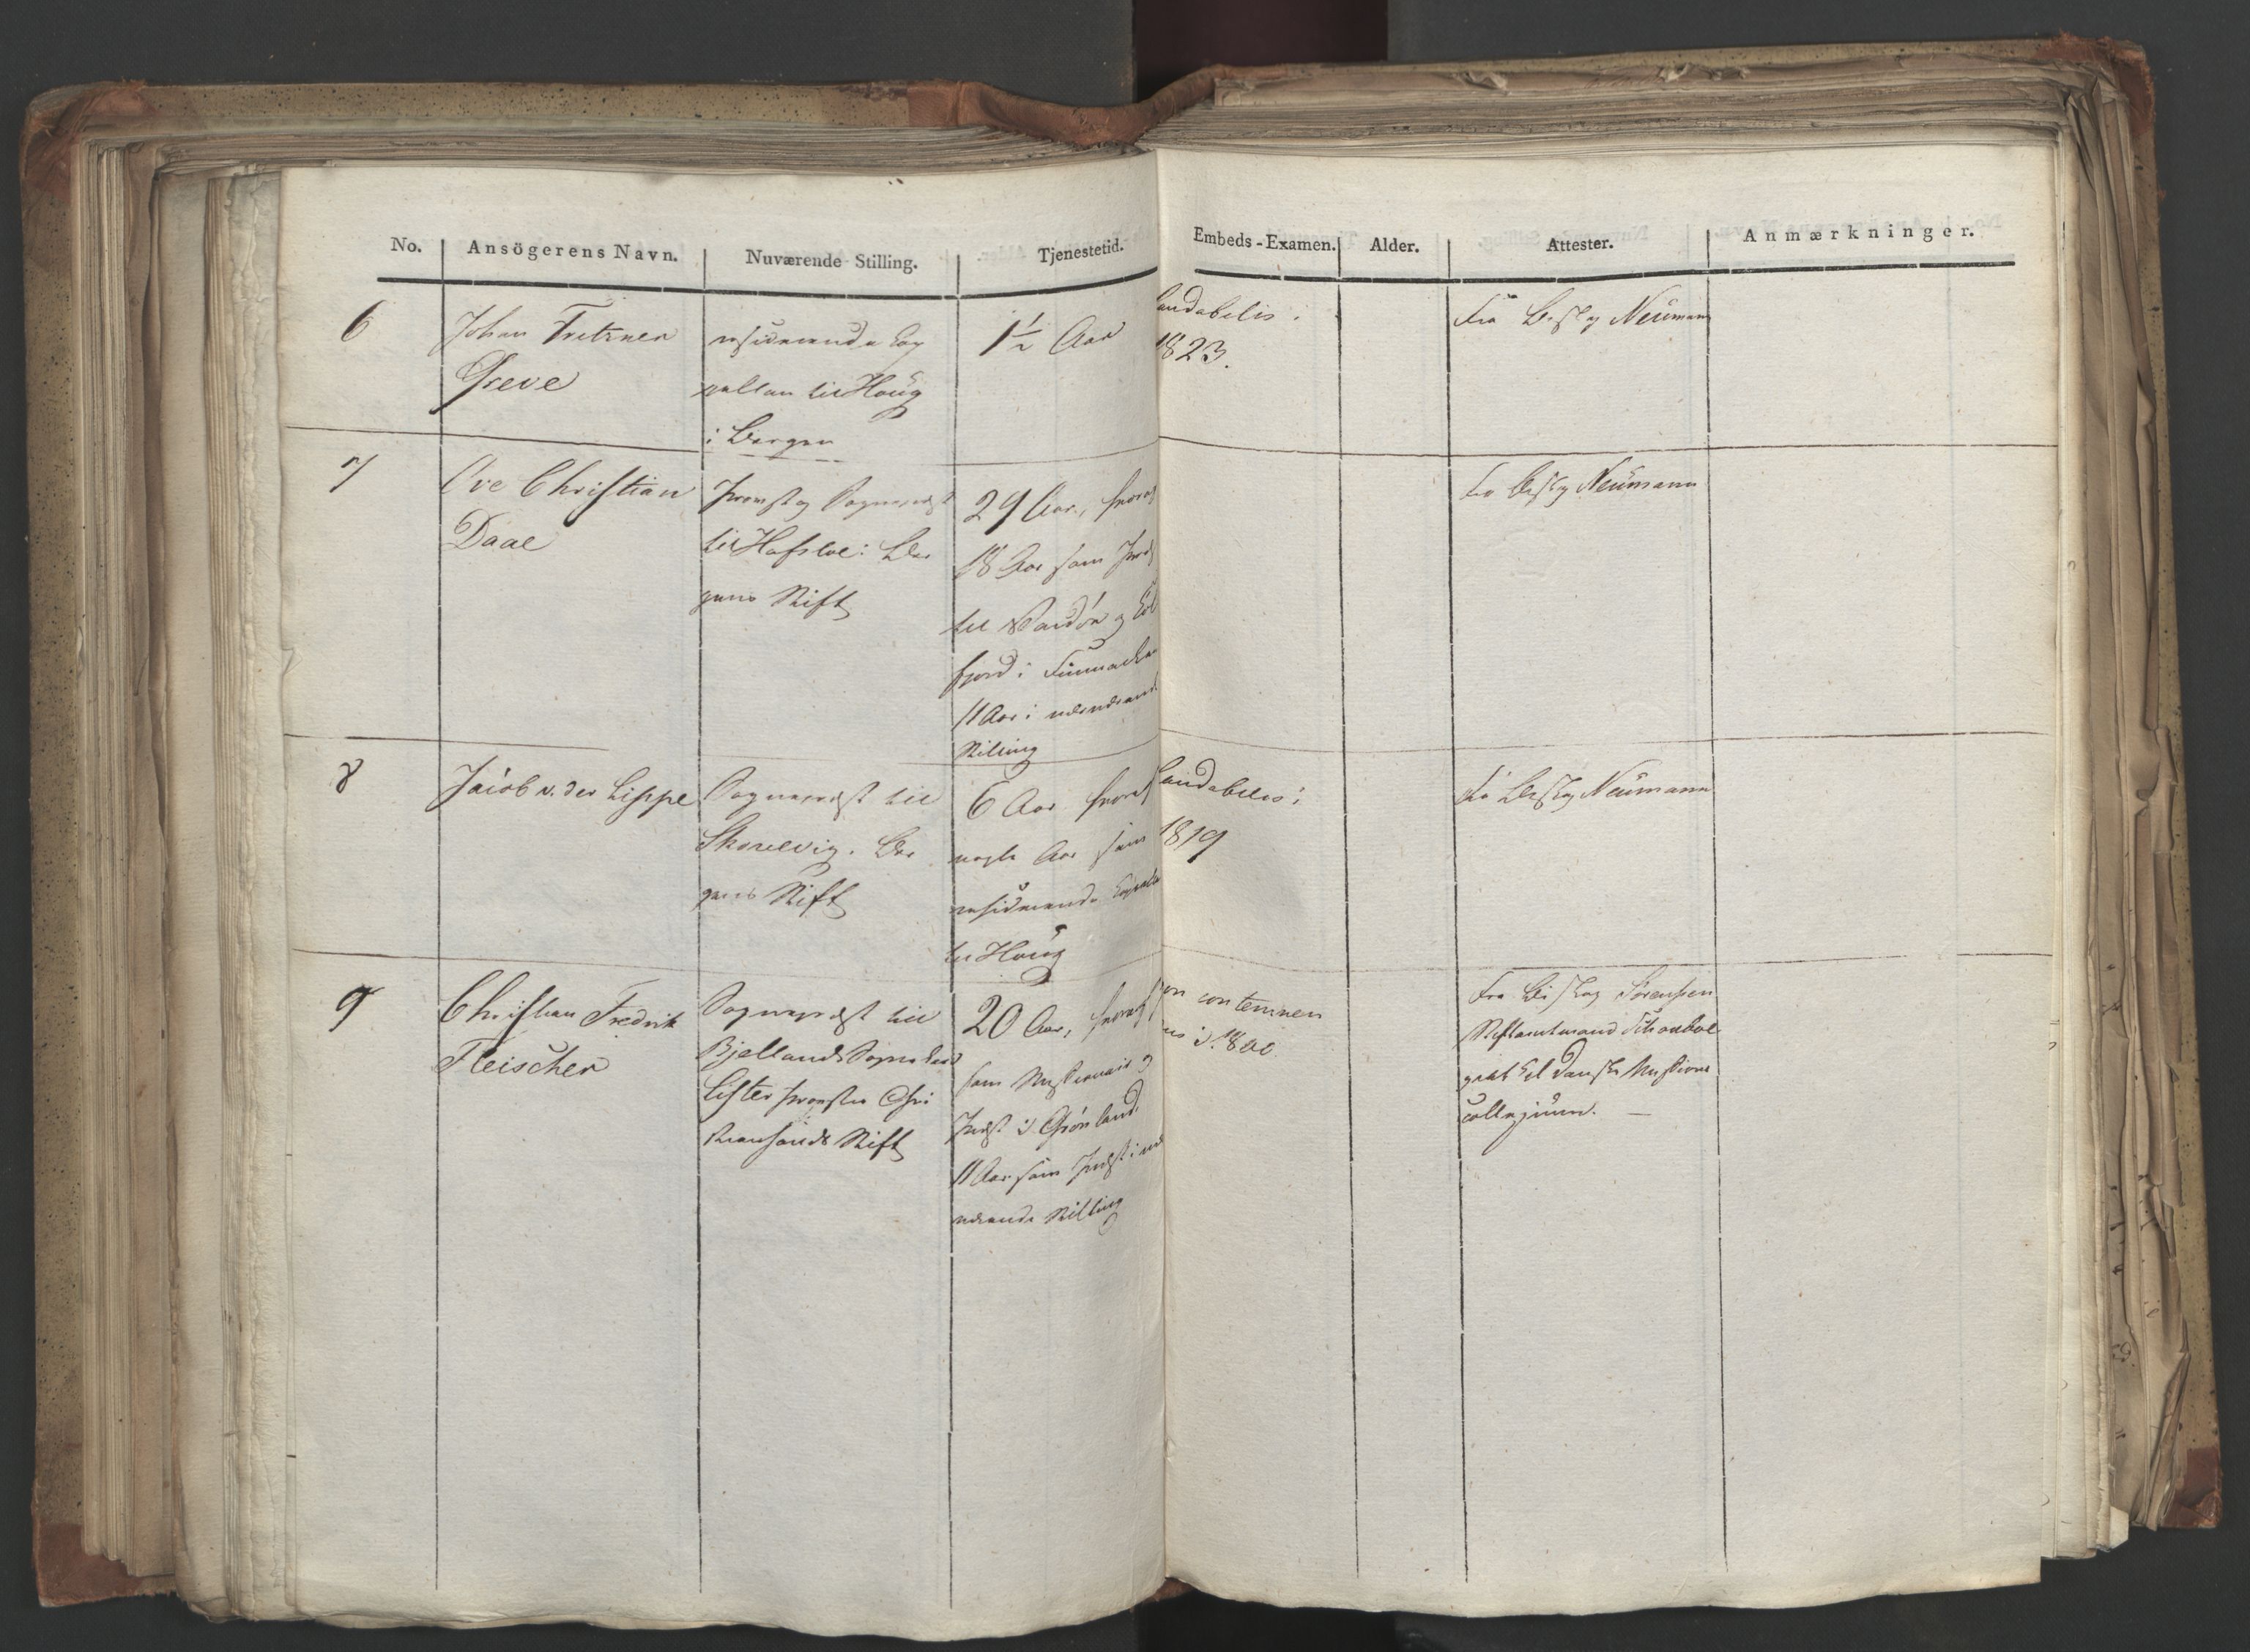 No. Ansögerens Navn. Nuværende Stilling. Tjenestetid. Embeds-Examen. Alder. Attester. Anmærkninger.
6
Johan Fritzner
Greve
residerende Cap
pellan til Houg
i Bergen
1½ Aar
laudabilis i
1823.
Fra Biskop Neumann
7
Ove Christian
Daae
Provst og Sognepræst
til Hafsloe i Ber
gens Stift
29 Aar, hvoraf
18 Aar som Præst
til Vardøe og
fjord i Finmarken
11 Aar i nærværende
Stilling
Fra Biskop Neumann
8
Jacob v. der Lippe
Sognepræst til
Skonevig i Ber
gens Stift
6 Aar hvoraf
nogle Aar som
residerende Capellan
til Houg
laudabilis i
1819
Fra Biskop Neumann
9
Christian Fredrik
Fleischer
Sognepræst til
Bjellands Sognekald
Lister Provstie Chri
stiansands Stift
20 Aar, hvoraf
som Missionair og
Præst i Grønland
11 Aar som Præst i nær
værende Stilling
non contemnen
dus i 1800.
Fra Biskop Sørenssen
Stiftamtmand
danske Missions
collegium. —